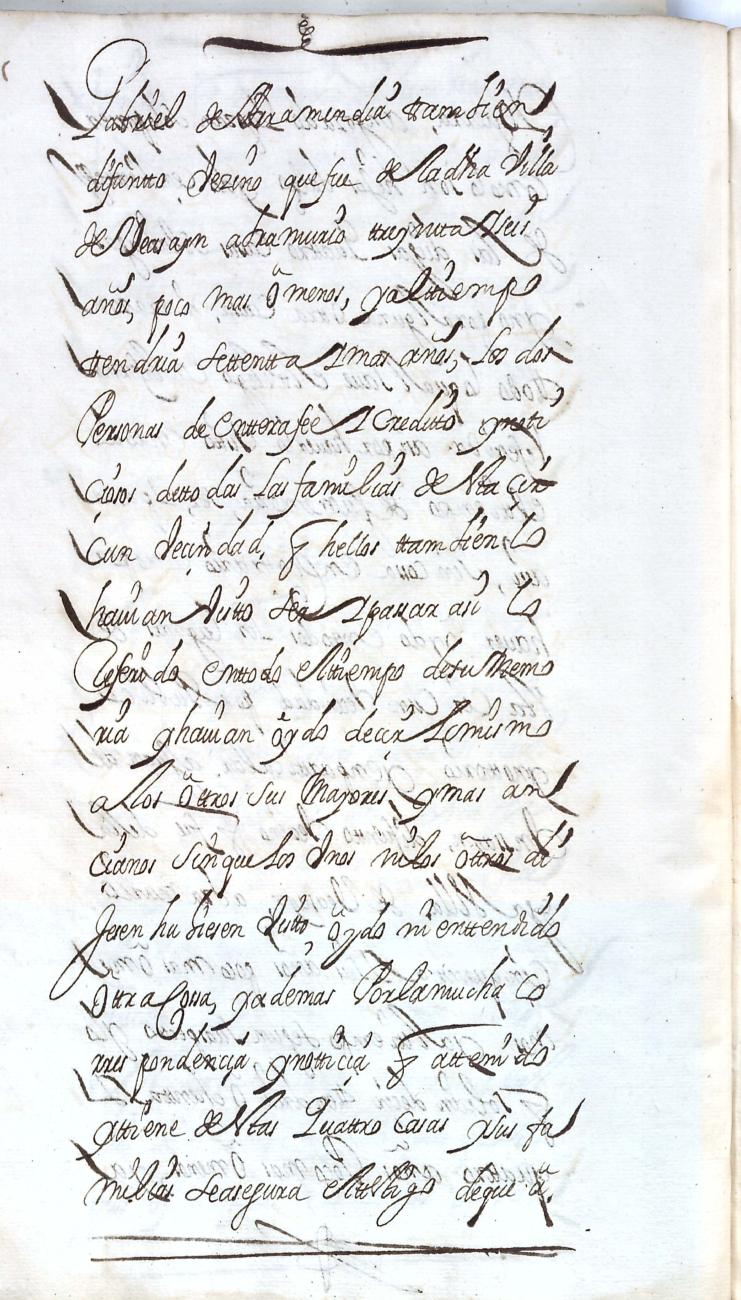 Gabriel de Arramendia ttambien
difuntto Vezino que fue de la dha Villa
de Veasayn abra murio treynta y seis
años, poco mas õ menos, y al ttiempo
ttendria settentta y mas años, los dos
Personas de enttera fee y creditto y noti
ciosos de ttodas las familias de esta cir
cun vecindad, q hellos ttambien lo
havian visto ser y pasar asi lo
Referido en ttodo el ttiempo de su Memo
ria y havian oydo decir lo mismo
a los õttros sus Mayores y mas an
cianos sin que los Unos ni los õttros di
jesen hubiesen Visto, õydo ni enttendido
õttra Cossa, y ademas Por la mucha co
rres pondencia y notticia q attenido
y ttiene de esttas Quattro casas y sus fa
milias se asegura el ttesttigo de que a.